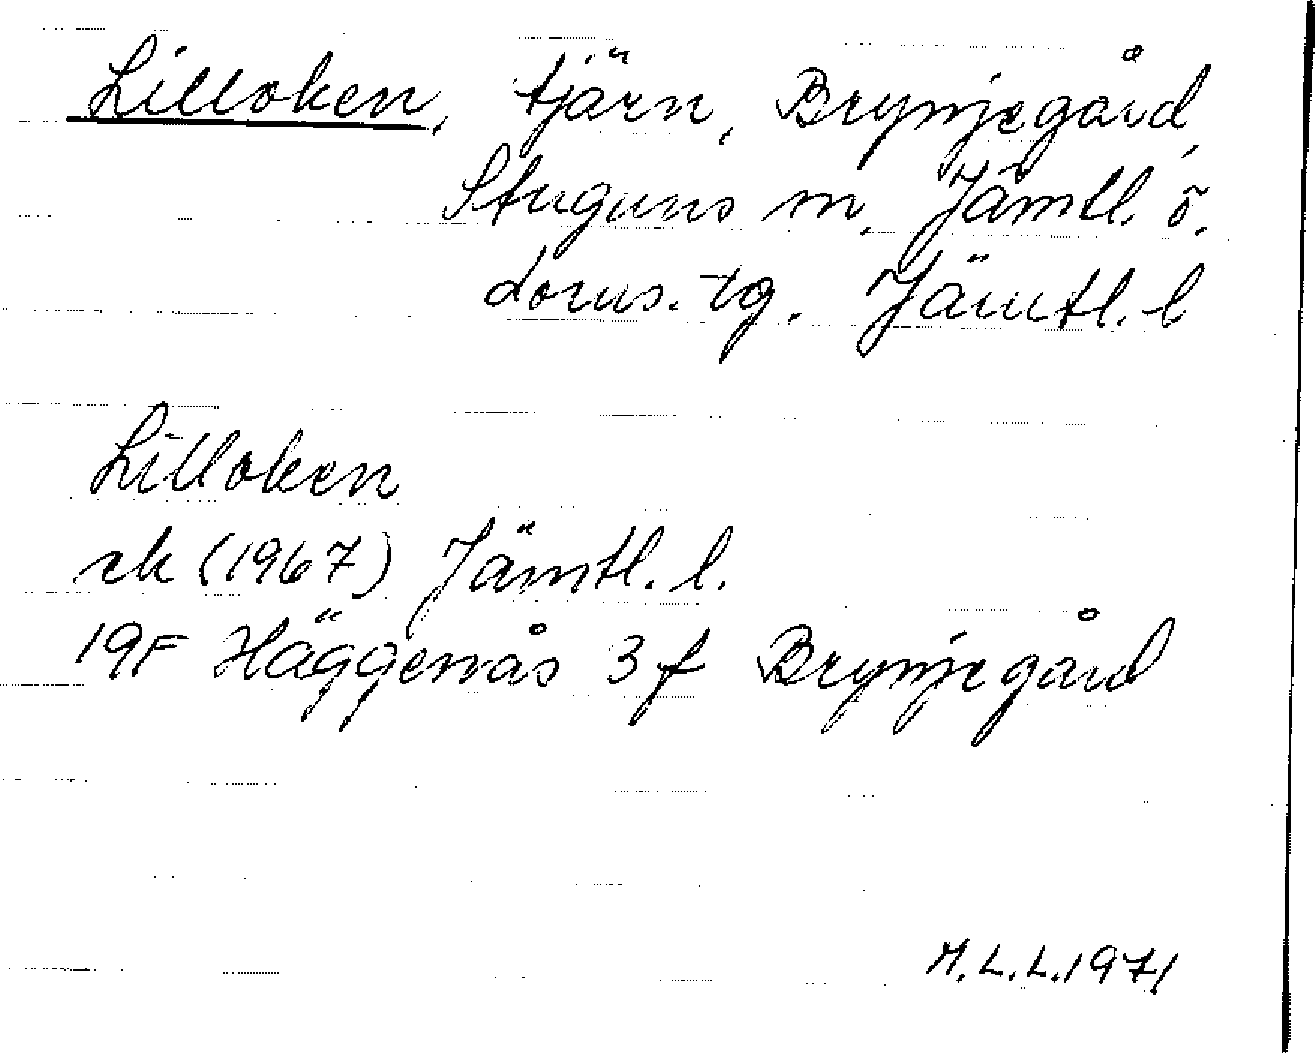 Lilloken, tjärn, Brynjegård,
Stuguns m, Jämtl. ö.
doms. tg. Jämtl. l
Lilloken
rk (1967) Jämtl. l.
19F Häggenås 3f Brynjegård
M.L.L.1971